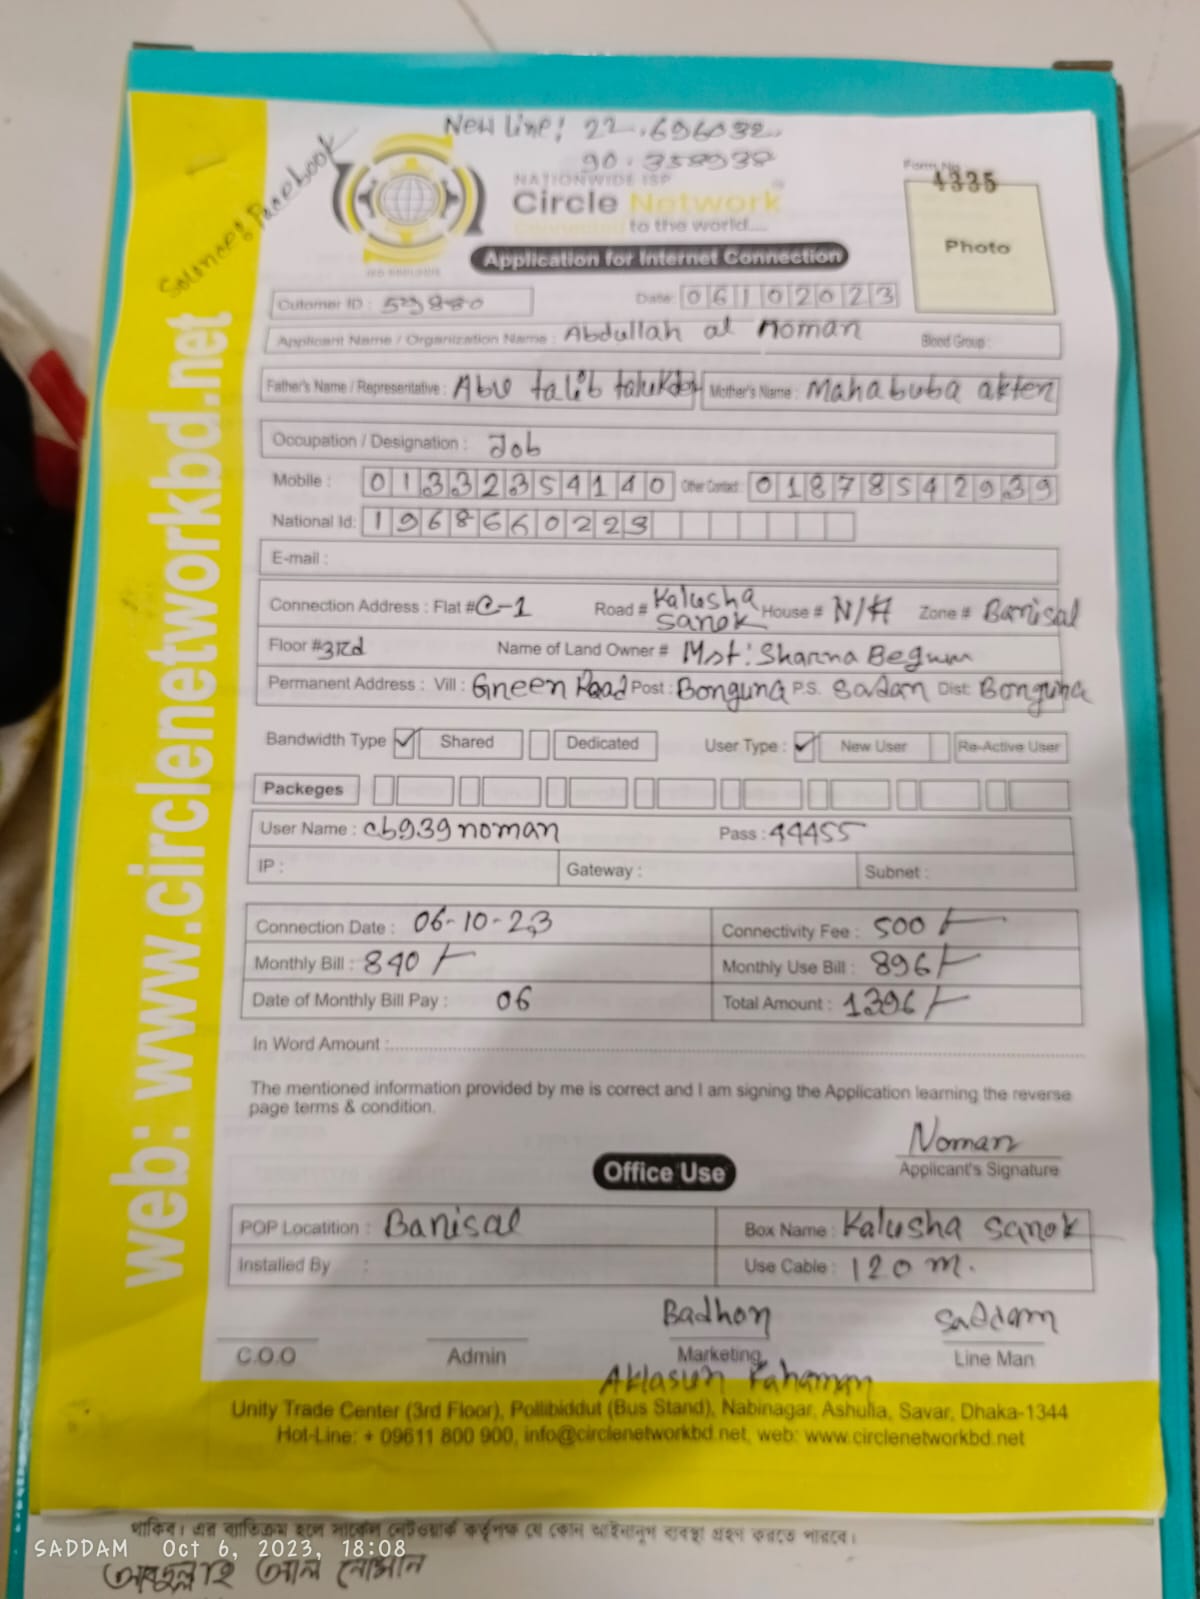 New Line: 22.696032,
90.358938
Source: Facebook
NATIONWIDE ISP
Circle Network
Connected to the world....
Form No.
4335
Photo
Application for Internet Connection
Cutomer ID : 59880
Date: 06102023
Applicant Name / Organization Name : Abdullah al Noman Blood Group :
Father's Name / Representative : Abu talib talukdar Mother's Name : Mahabuba akter
Occupation / Designation : Job
Mobile : 01332354140 Other Contact: 01878542939
National Id: 1968660223
E-mail :
Connection Address : Flat # C-1 Road # Kalusha Sarok House # N/A Zone # Barisal
Floor # 3rd Name of Land Owner # Mst: Sharna Begum
Permanent Address : Vill : Green Road Post : Borguna P.S. Sadar Dist: Borguna
Bandwidth Type ✓ Shared Dedicated User Type : ✓ New User Re-Active User
Packeges
User Name : cb939noman Pass : 44455
IP : Gateway : Subnet :
Connection Date : 06-10-23 Connectivity Fee : 500/-
Monthly Bill : 840/- Monthly Use Bill : 896/-
Date of Monthly Bill Pay : 06 Total Amount : 1396/-
In Word Amount :
The mentioned information provided by me is correct and I am signing the Application learning the reverse
page terms & condition.
Noman
Applicant's Signature
Office Use
POP Locatition : Barisal Box Name : Kalusha Sarok
Installed By : Use Cable : 120 m.
Badhon Saddam
C.O.O Admin Marketing Line Man
Aklasur Rahaman
Unity Trade Center (3rd Floor), Pollibiddut (Bus Stand), Nabinagar, Ashulia, Savar, Dhaka-1344
Hot-Line: + 09611 800 900, info@circlenetworkbd.net, web: www.circlenetworkbd.net
web: www.circlenetworkbd.net
থাকিব। এর ব্যতিক্রম হলে সার্কেল নেটওয়ার্ক কর্তৃপক্ষ যে কোন আইনানুগ ব্যবস্থা গ্রহণ করতে পারবে।
SADDAM Oct 6, 2023, 18:08
আবদুল্লাহ আল নোমান